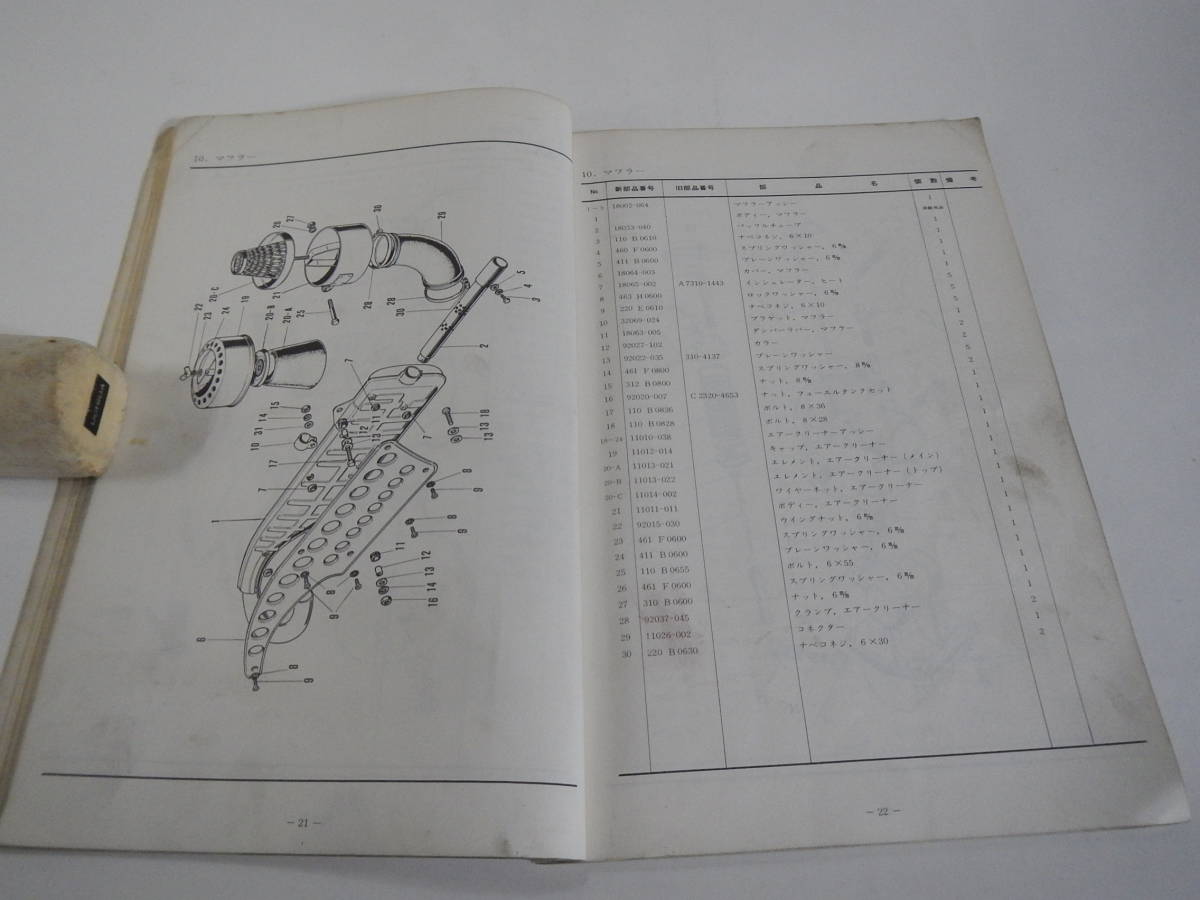 10. マフラー
— 21 —
10. マフラー
No 新部品番号 旧部品番号 部 品 名 個数 備考
18002-064 マフラーアッシー 1
1 ボディー，マフラー
2 18033-040 バッフルチューブ 1
3 110 B 0610 ナベコネジ，6×10 1
4 460 F 0600 スプリングワッシャー，6㎜ 1
5 411 B 0600 プレーンワッシャー，6㎜ 1
6 18064-003 カバー，マフラー 1
7 18065-002 A 7310-1443 インシュレーター，ヒート 5
8 463 H 0600 ロックワッシャー，6㎜ 5
9 220 E 0610 ナベコネジ，6×10 5
10 32069-024 ブラケット，マフラー 1
11 18063-005 ダンパーラバー，マフラー 2
12 92027-102 カラー 2
13 92022-035 310-4137 プレーンワッシャー 5
14 461 F 0800 スプリングワッシャー，8㎜ 2
15 312 B 0800 ナット，8㎜ 1
16 92020-007 C 2320-4653 ナット，フューエルタンクセット 1
17 110 B 0836 ボルト，8×36 1
18 110 B 0828 ボルト，8×28 1
11010-038 エアークリーナーアッシー 1
19 11012-014 キャップ，エアークリーナー 1
20-A 11013-021 エレメント，エアークリーナー（メイン） 1
20-B 11013-022 エレメント，エアークリーナー（トップ） 1
20-C 11014-002 ワイヤーネット，エアークリーナー 1
21 11011-011 ボディー，エアークリーナー 1
22 92015-030 ウイングナット，6㎜ 1
23 461 F 0600 スプリングワッシャー，6㎜ 1
24 411 B 0600 プレーンワッシャー，6㎜ 1
25 110 B 0655 ボルト，6×55 1
26 461 F 0600 スプリングワッシャー，6㎜ 1
27 310 B 0600 ナット，6㎜ 1
28 92037-045 クランプ，エアークリーナー 2
29 11026-002 コネクター 1
30 220 B 0630 ナベコネジ，6×30 2
— 22 —